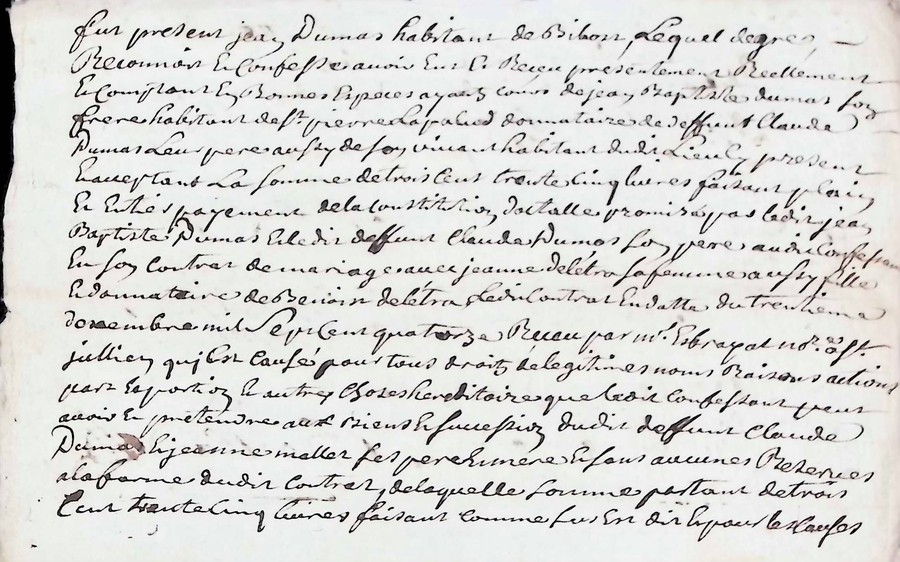 fut present jean Dumas habitant de Bibost, Lequel degres,
Reconnoit Et Confesse avoir Eut Et Reçeu présentement Reellement
Et Comptant En Bonnes Especes ayant cours de jean Baptiste dumas son
frere habitant de st. pierre Lapalud donnataire de deffunt Claude
Dumas Leur pere aussy de son vivant habitant dudit Lieu Cy present
Et acceptant La somme de trois Cent trente Cinq livres faisant plain
Et Entier payement de la Constitution dotalle promise par ledit jean
Baptiste Dumas Et ledit deffunt Claude Dumas son pere audit Confessant
En son Contrat de mariage avec jeanne delétra sa femme aussy fille
Et donnataire de Benoist delétra, ledit Contrat En datte du trentiema
novembre mil Sept Cent quatorze Receu par mr. Esbrayat nore. a st.
jullien qui Est Causé pour tous droits de legitimes noms Raisons actions
part Et portion Et autres Choses hereditaire que ledit Confessant peut
avoir Et pretendre aux Biens Et succession dudit deffunt Claude
Dumas Et jeanne mallet ses pere Et mere Et sans aucunes Reserves
a la forme dudit Contrat, de laquelle somme partant de trois
Cent trente Cinq livres faisant comme sus Est dit Et pour les Causes